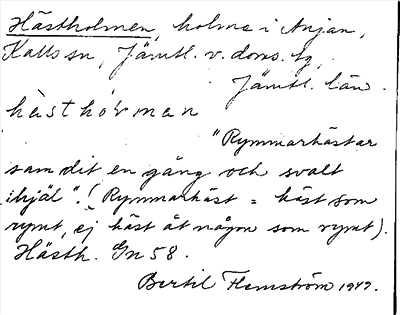 Hästholmen, holme i Anjan,
Kalls sn, Jämtl. v. doms. tg,
Jämtl. län.
hästhòrman
"Rymmarhästar
sam dit en gång och svalt
ihjäl". (Rymmarhäst = häst som
rymt, ej häst åt någon som rymt).
Hästh. Gn 58.
Bertil Flemström 1947.